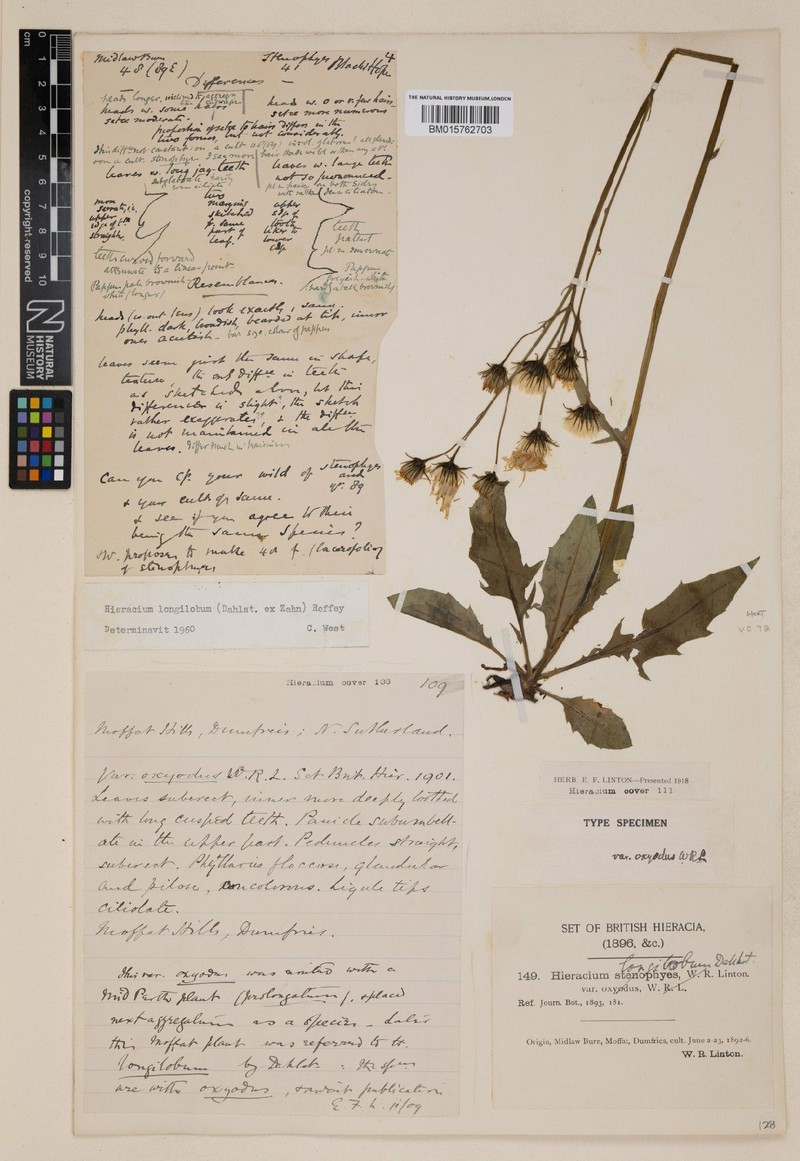 Midlaw Burn
48 (89E)
Stenophyes
41 Blacks Hope
4
Differences —
heads longer,
heads w. some hairs
setae moderate.
heads w. 0 or v. few hairs
setae more numerous
proportion of setae to hairs differs in the
two forms, but not considerably.
leaves w. long jag. teeth
leaves w. large teeth
not so pronounced -
two
margins
sketched
fr. same
part of
leaf.
upper
edge of
tooth
liker to
lower
edge
more
serrate, i.e.
upper
edge of
straighter
teeth
patent
teeth curved forward
attenuate to a linear point
Pappus pale brownish
Resemblances.
heads (w. out lens) look exactly same.
phyll. dark, broadish, bearded at tip, inner
ones acutish - hair size, colour of pappus
leaves seem quite the same in shape,
texture, the only diffce in teeth
as sketched above, but this
difference is slight, the sketch
rather exaggerates, & the diffce
is not maintained in all the
leaves. Differ much in hairiness
Can you cf. your wild of stenophyes
and
yr. 89
& your cult. of same.
& see if you agree to their
being the same species?
W. proposes to make 48 f. (laceifolia)
of stenophyes
Hieracium longilobum (Dahlst. ex Zahn) Roffey
Determinavit 1960 C. West
Hieracium cover 100 109
Moffat Hills, Dumfries; N. Sutherland.
Var: oxyodus W.R.L. Set Brit. Hier. 1901.
Leaves suberect, inner more deeply toothed
with long cusped teeth. Panicle subumbell-
ate in the upper part. Peduncles straight,
suberect. Phyllaries floccose, glandular
and pilose, concolorous. Ligule tips
ciliolate.
Moffat Hills, Dumfries.
This var. oxyodus was united with a
Mid Perth plant (prolongatum), & placed
next aggregatum as a species - Later
this Moffat plant was referred to to
longilobum by Dahlst. : the specns
are with oxyodus, & await publication
E. F. L. 11/09
THE NATURAL HISTORY MUSEUM, LONDON
BM015762703
V C 72
HERB. E. F. LINTON—Presented 1918
Hieracium cover 111
TYPE SPECIMEN
var. oxyodus W.R.L
SET OF BRITISH HIERACIA,
(1896, &c.)
longilobum Dahlst.
149. Hieracium stenophyes, W. R. Linton.
var. oxyodus, W. R. L.
Ref. Journ. Bot., 1893, 181.
Origin, Midlaw Burn, Moffat, Dumfries, cult. June 2-23, 1892-6.
W. R. Linton.
128
cm 0 1 2 3 4 5 6 7 8 9 10
copyright reserved
NATURAL
HISTORY
MUSEUM